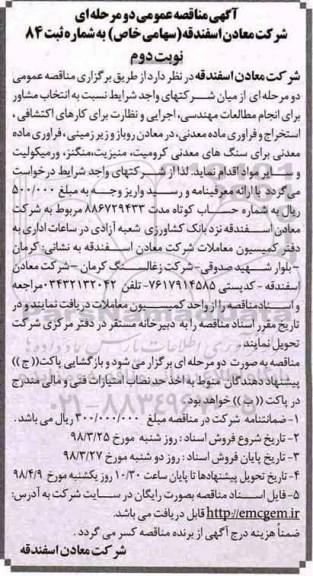 آگهی مناقصه عمومی دو مرحله ای
شرکت معادن اسفندقه (سهامی خاص) به شماره ثبت ۸۴
نوبت دوم
شرکت معادن اسفندقه در نظر دارد از طریق برگزاری مناقصه عمومی
دو مرحله ای از میان شرکتهای واجد شرایط نسبت به انتخاب مشاور
برای انجام مطالعات مهندسی، اجرایی و نظارت برای کارهای اکتشافی،
استخراج و فراوری ماده معدنی، در معادن روباز و زیرزمینی، فراوری ماده
معدنی برای سنگ های معدنی کرومیت، منیزیت، منگنز، ورمیکولیت
و سایر مواد اقدام نماید. لذا از شرکتهای واجد شرایط درخواست
می گردد با ارائه معرفینامه و رسید واریز وجه به مبلغ ۵۰۰/۰۰۰
ریال به شماره حساب کوتاه مدت ۸۸۶۷۲۹۴۳۳ مربوط به شرکت
معادن اسفندقه نزد بانک کشاورزی شعبه آزادی در ساعات اداری به
دفتر کمیسیون معاملات شرکت معادن اسفندقه به نشانی: کرمان
- بلوار شهید صدوقی - شرکت زغالسنگ کرمان - شرکت معادن
اسفندقه - کدپستی ۷۶۱۷۹۱۴۵۸۵ - تلفن ۰۳۴۳۲۱۳۲۰۴۲ مراجعه
و اسناد مناقصه را از واحد کمیسیون معاملات دریافت نمایند و در
تاریخ مقرر اسناد مناقصه را به دبیرخانه مستقر در دفتر مرکزی شرکت
تحویل نمایند.
مناقصه به صورت دو مرحله ای برگزار می شود و بازگشایی پاکت (( ج ))
پیشنهاد دهندگان منوط به اخذ حد نصاب امتیازات فنی و مالی مندرج
در پاکت (( ب )) خواهد بود.
۱- ضمانتنامه شرکت در مناقصه مبلغ ۳۰۰/۰۰۰/۰۰۰ ریال می باشد.
۲- تاریخ شروع فروش اسناد: روز شنبه مورخ ۹۸/۳/۲۵
۳- تاریخ پایان فروش اسناد: روز دو شنبه مورخ ۹۸/۳/۲۷
۴- تاریخ تحویل پیشنهادها تا پایان ساعت ۱۰/۳۰ روز یکشنبه مورخ ۹۸/۴/۹
۵- فایل اسناد مناقصه بصورت رایگان در سایت شرکت به آدرس:
http://emcgem.ir قابل دریافت می باشد.
ضمناً هزینه درج آگهی از برنده مناقصه کسر می گردد.
شرکت معادن اسفندقه